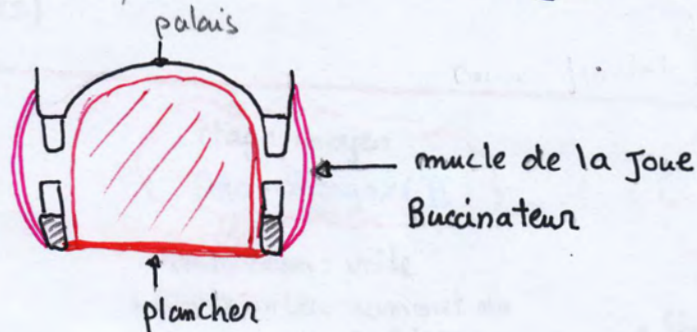 palais
mucle de la Joue
Buccinateur
plancher